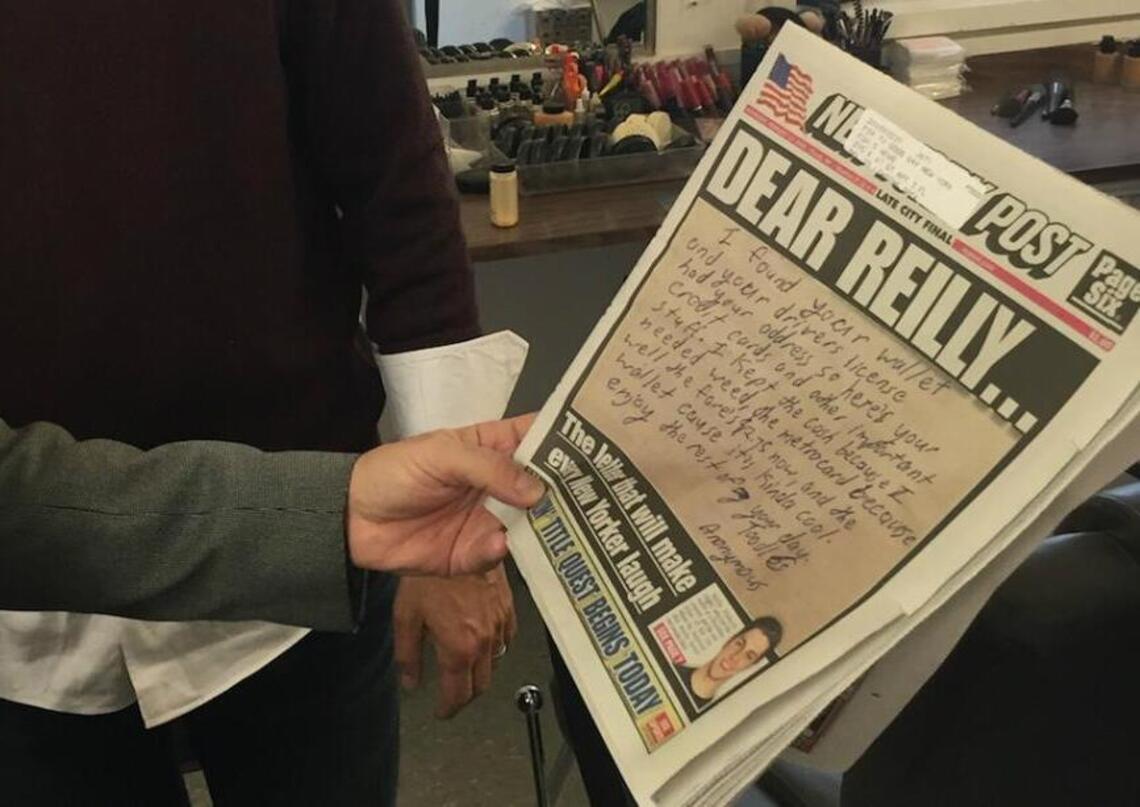 NEW YORK POST
LATE CITY FINAL
Page
Six
DEAR REILLY...
I found your wallet
and your drivers license
had your address so here's your
credit cards and other important
stuff. I kept the cash because I
needed weed, the metrocard because
well the fare's $2.75 now, and the
wallet cause it's kinda cool.
enjoy the rest of your day.
Toodles
Anonymous
The letter that will make
every New Yorker laugh
TITLE QUEST BEGINS TODAY